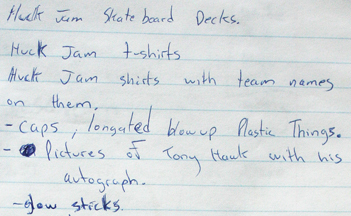 Huck Jam Skateboard Decks.
Huck Jam t-shirts
Huck Jam shirts with team names
on them.
- caps, longated blowup Plastic Things.
- Pictures of Tony Hawk with his
autograph.
- glow sticks.